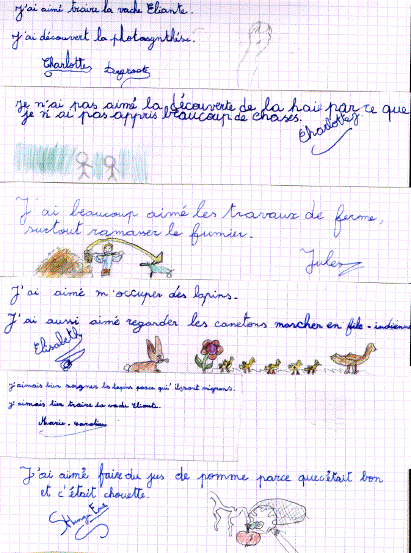 J'ai aimé traire la vache Eliante.
J'ai découvert la photosynthèse.
Charlotte
Je n'ai pas aimé la découverte de la haie par ce que
je n'ai pas appris beaucoup de choses.
Charlotte
J'ai beaucoup aimé les travaux de ferme,
surtout ramasser le fumier.
Jules
J'ai aimé m'occuper des lapins.
J'ai aussi aimé regarder les canetons marcher en file-indienne
Elisabeth
j'aimais bien soigner les lapins parce qu'ils sont mignons.
j'aimais bien traire la vache Eliante.
Marie-Caroline
J'ai aimé faire du jus de pomme parce que c'était bon
et c'était chouette.